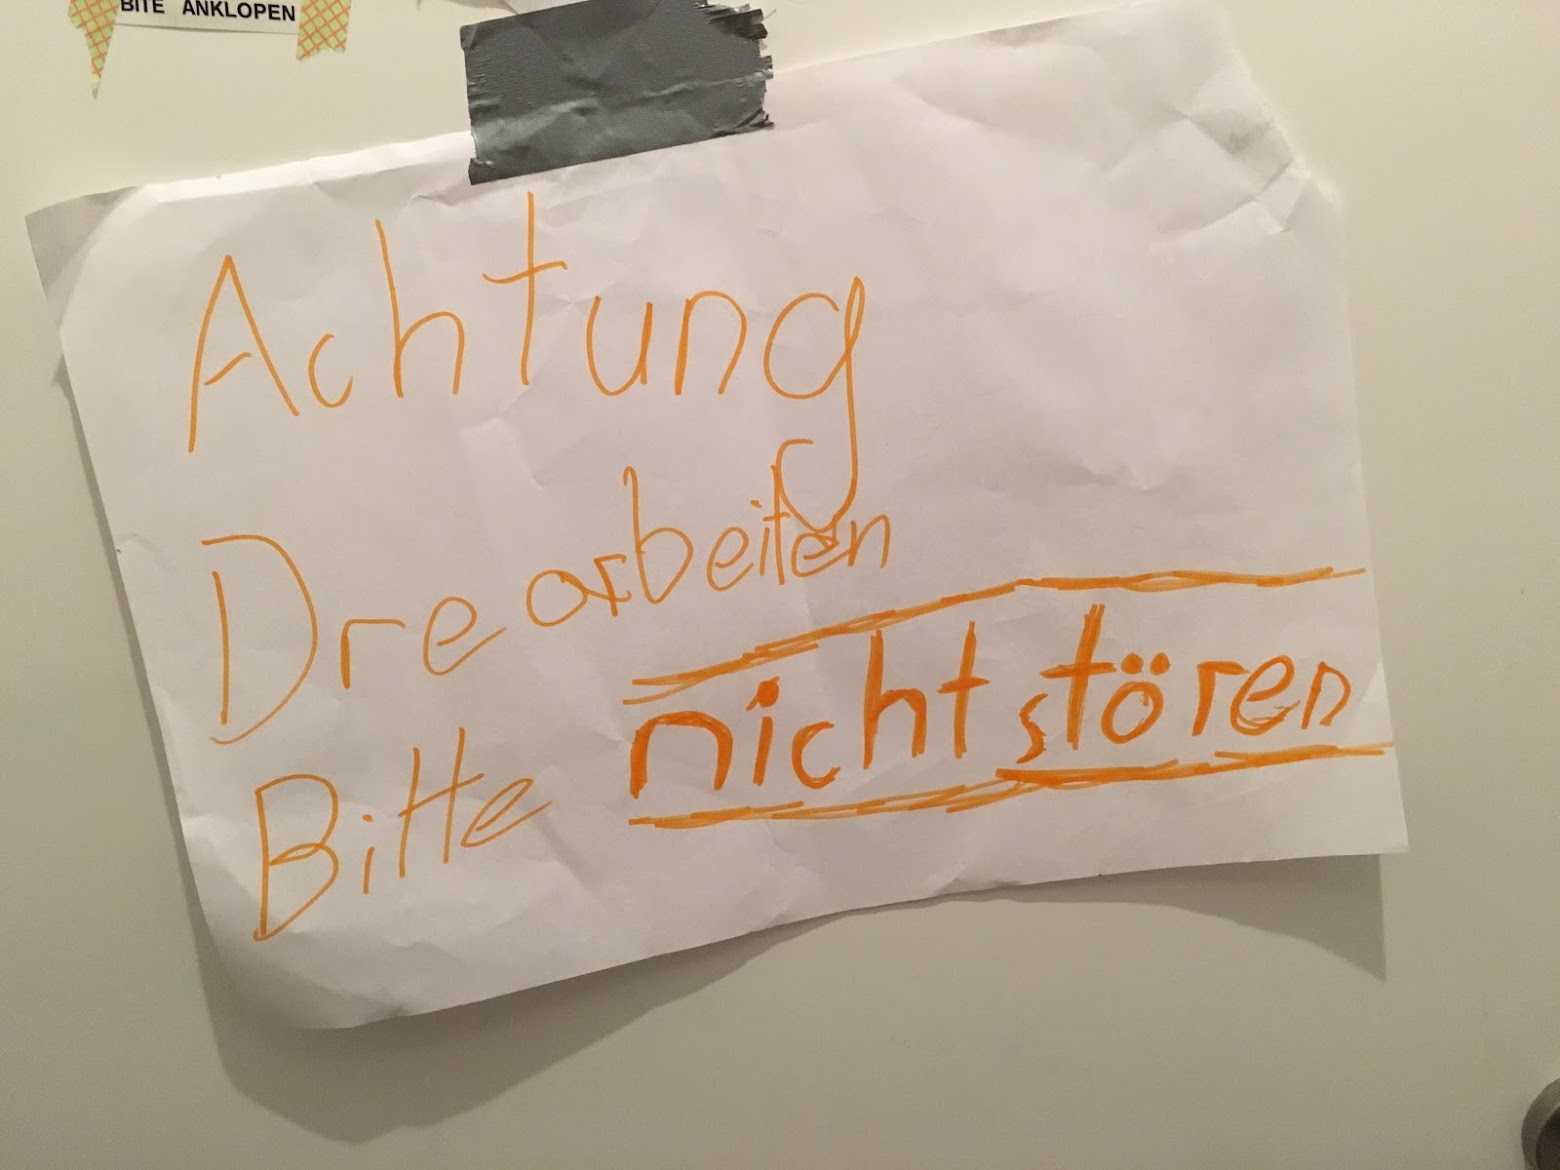 BITE ANKLOPEN
Achtung
Drearbeiten
Bitte nicht stören